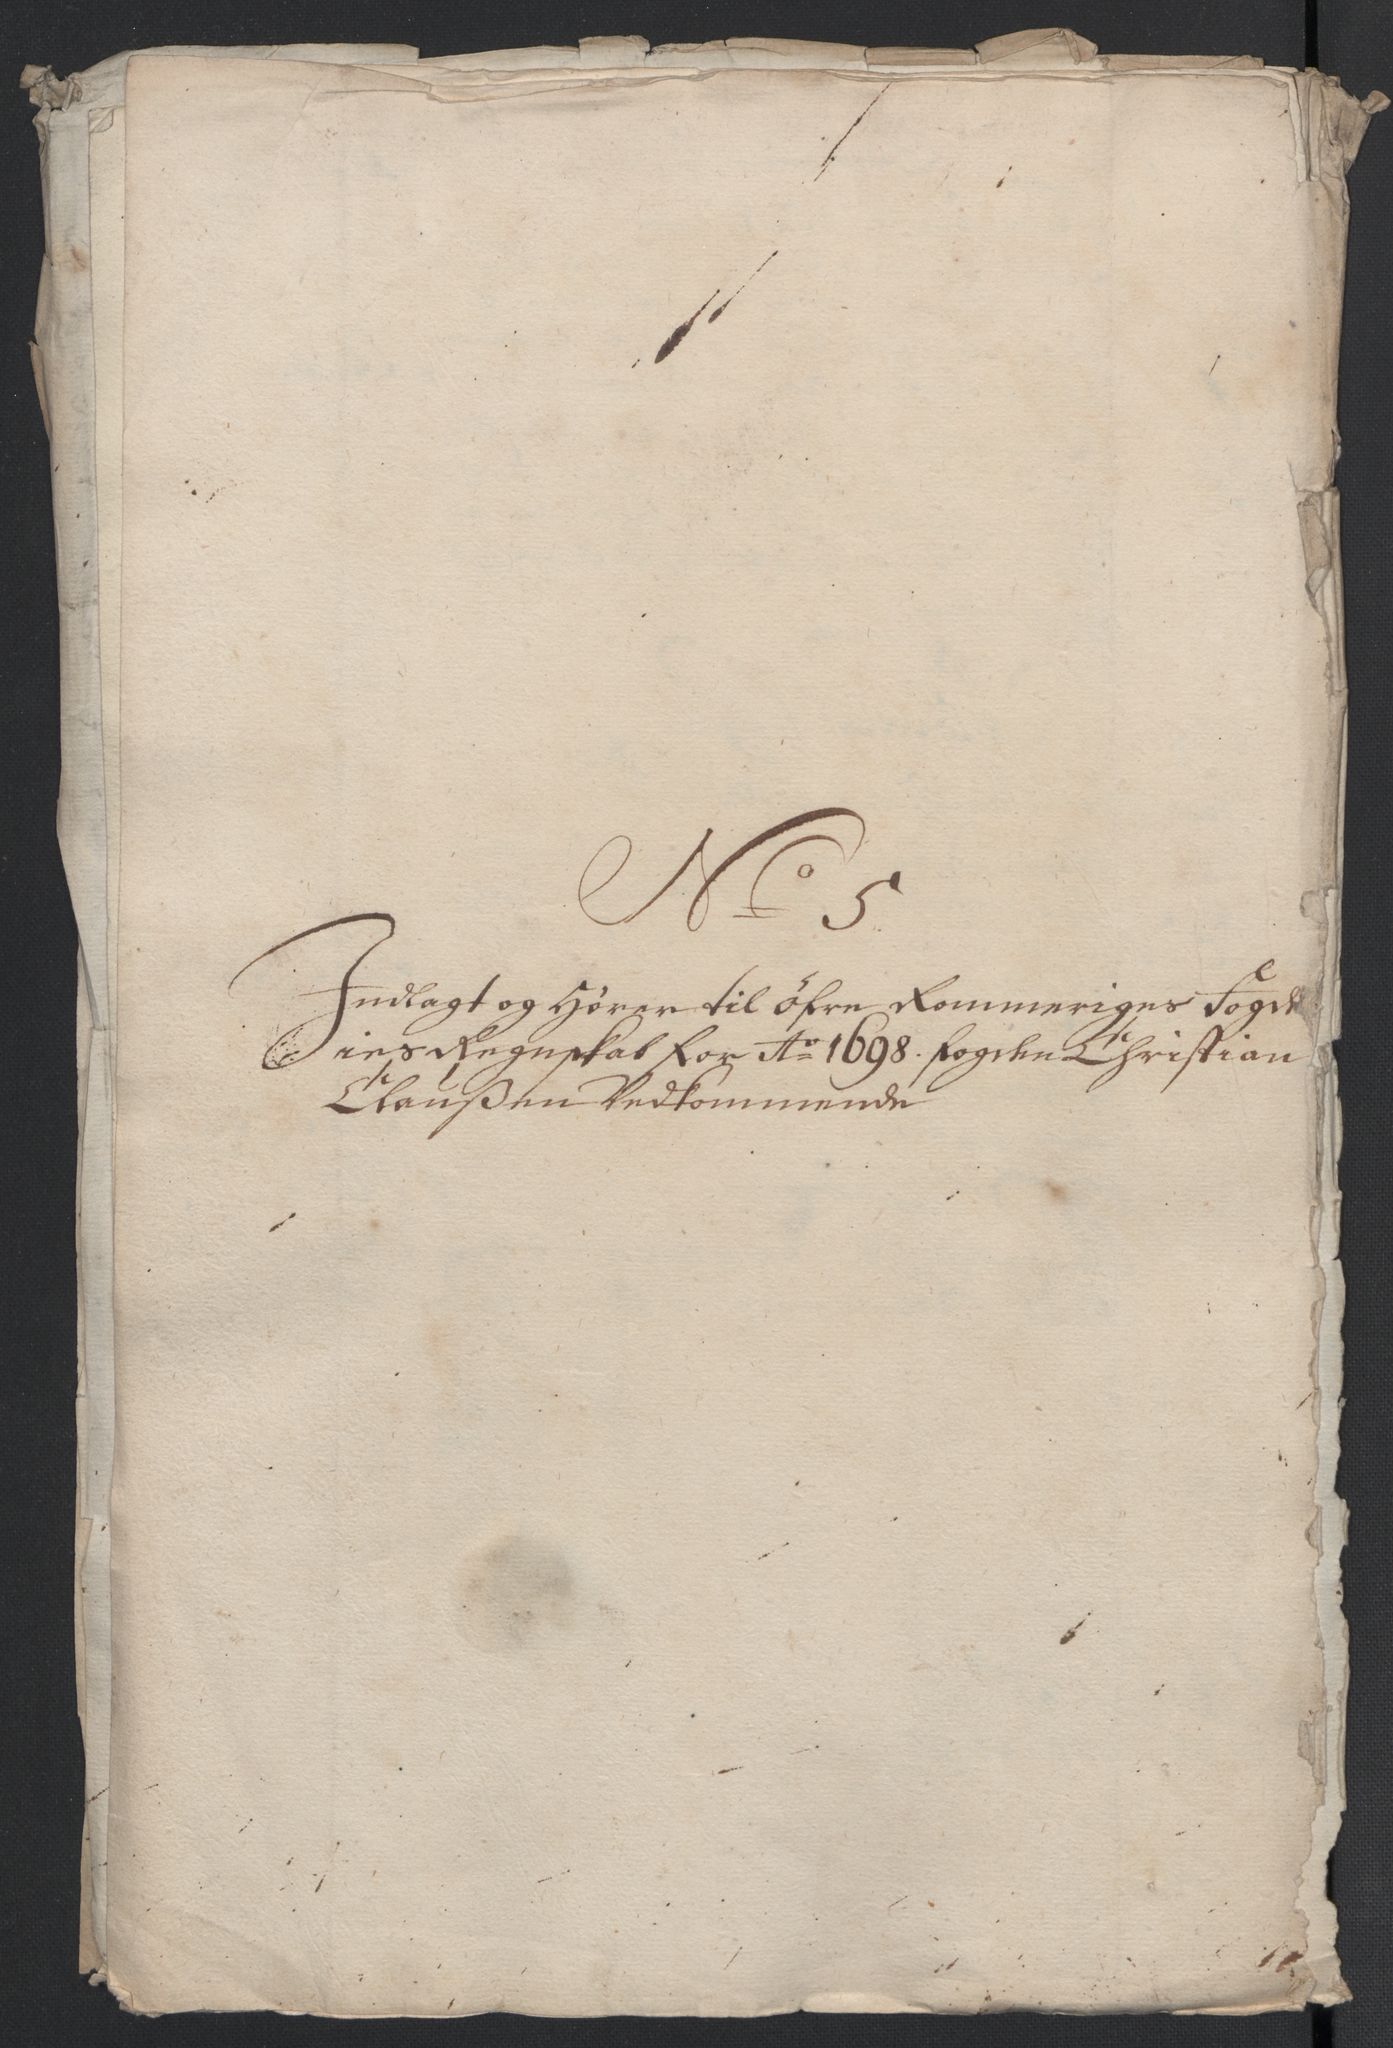 No 5
Indlagt og Hører til Öfre Rommeriges Fogde
ies Regnskab for Ao 1698. fogden Christian
Claußen Vedkommende